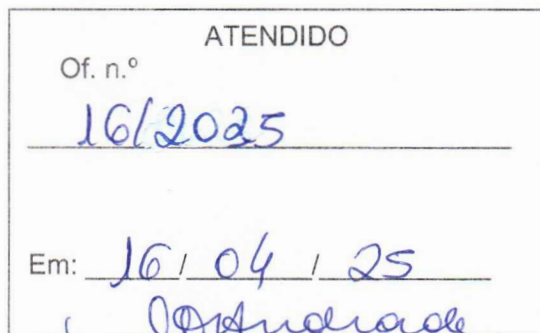 ATENDIDO
Of. n.º
16/2025
Em: 16 / 04 / 25